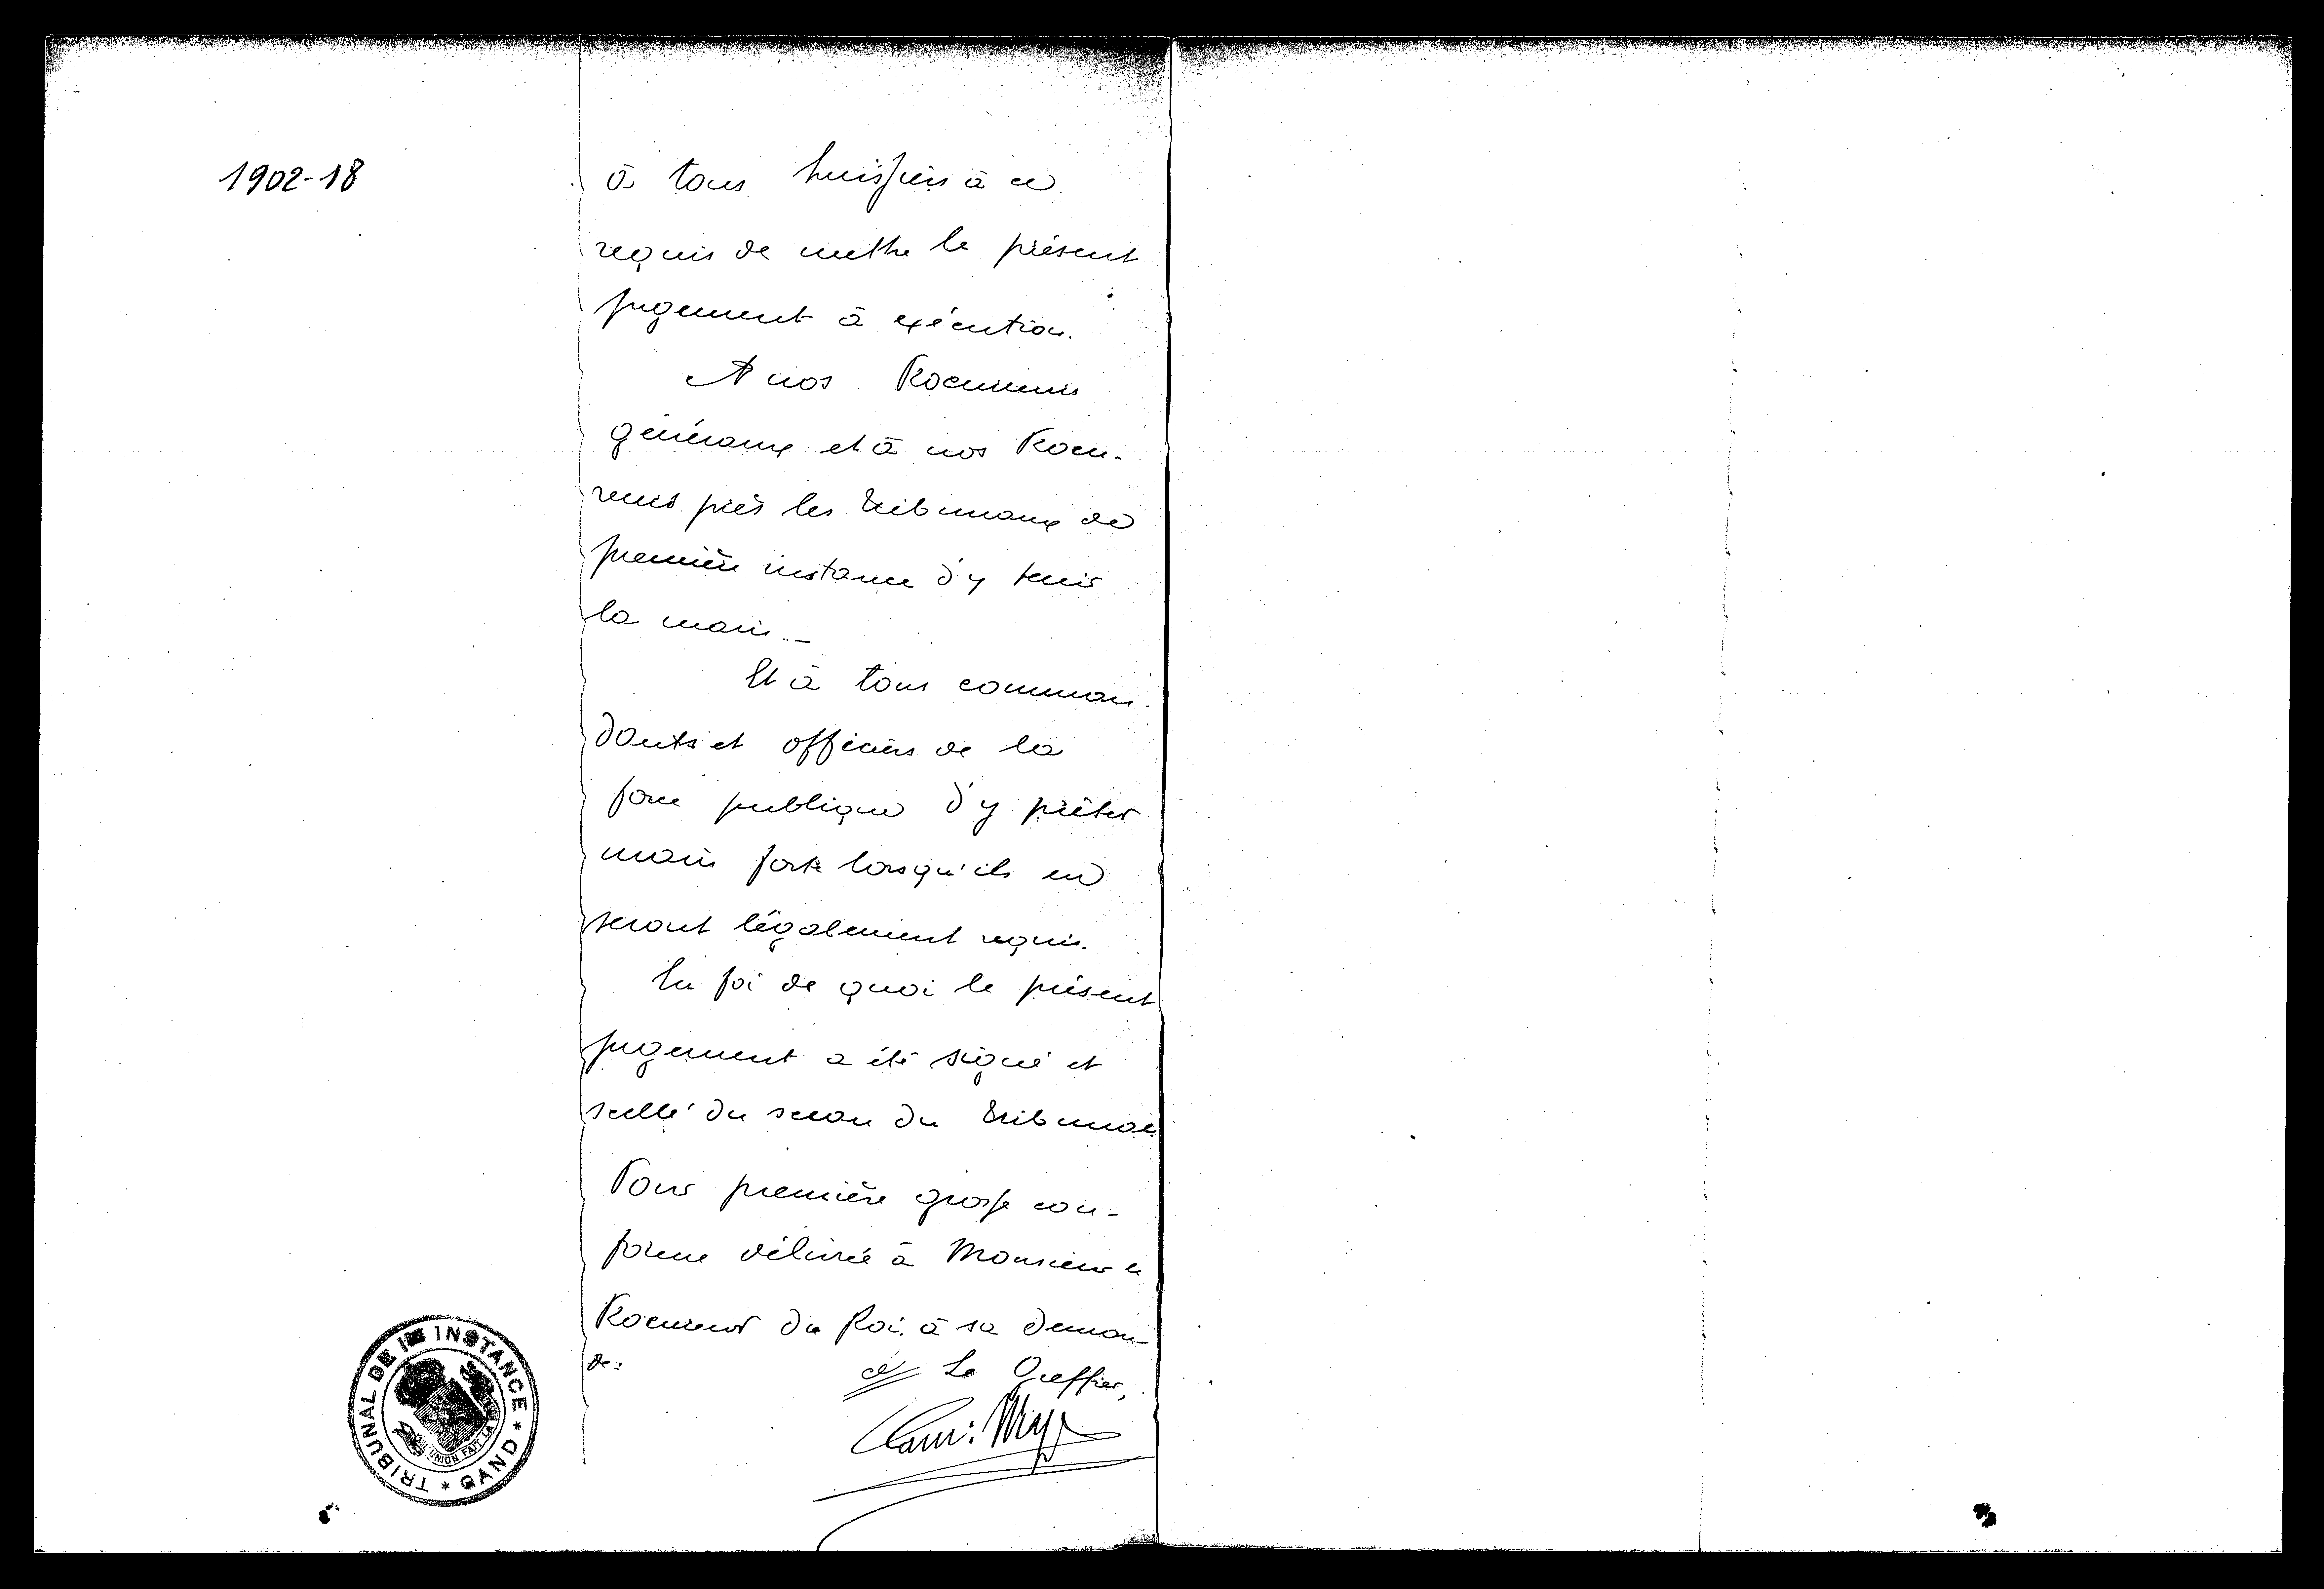 1902-18
à tous huissiers à ce
requis de mettre le présent
jugement à exécution.
A nos Procureurs
généraux et à nos Procu-
reurs près les tribunaux de
première instance d'y tenir
la main. -
Et à tous comman-
dants et officiers de la
force publique d'y prêter
main forte lorsqu'ils en
seront légalement requis.
En foi de quoi le présent
jugement a été signé et
scellé du sceau du tribunal
Pour première grosse con-
forme délivrée à Monsieur le
Procureur du Roi à sa deman-
de:
Le Greffier,
TRIBUNAL DE 1RE INSTANCE * GAND *
L'UNION FAIT LA